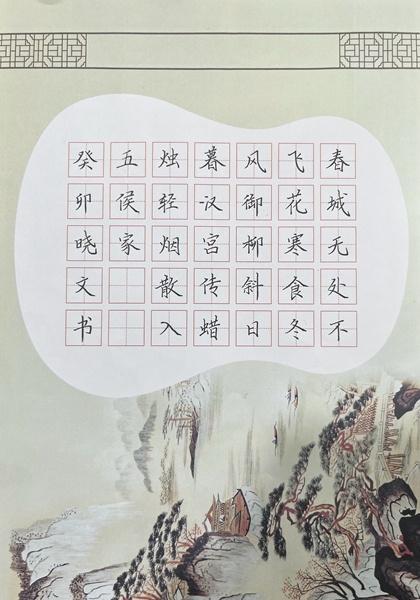 春城无处不
飞花寒食冬
风御柳斜日
暮汉宫传蜡
烛轻烟散入
五侯家
癸卯晓文书